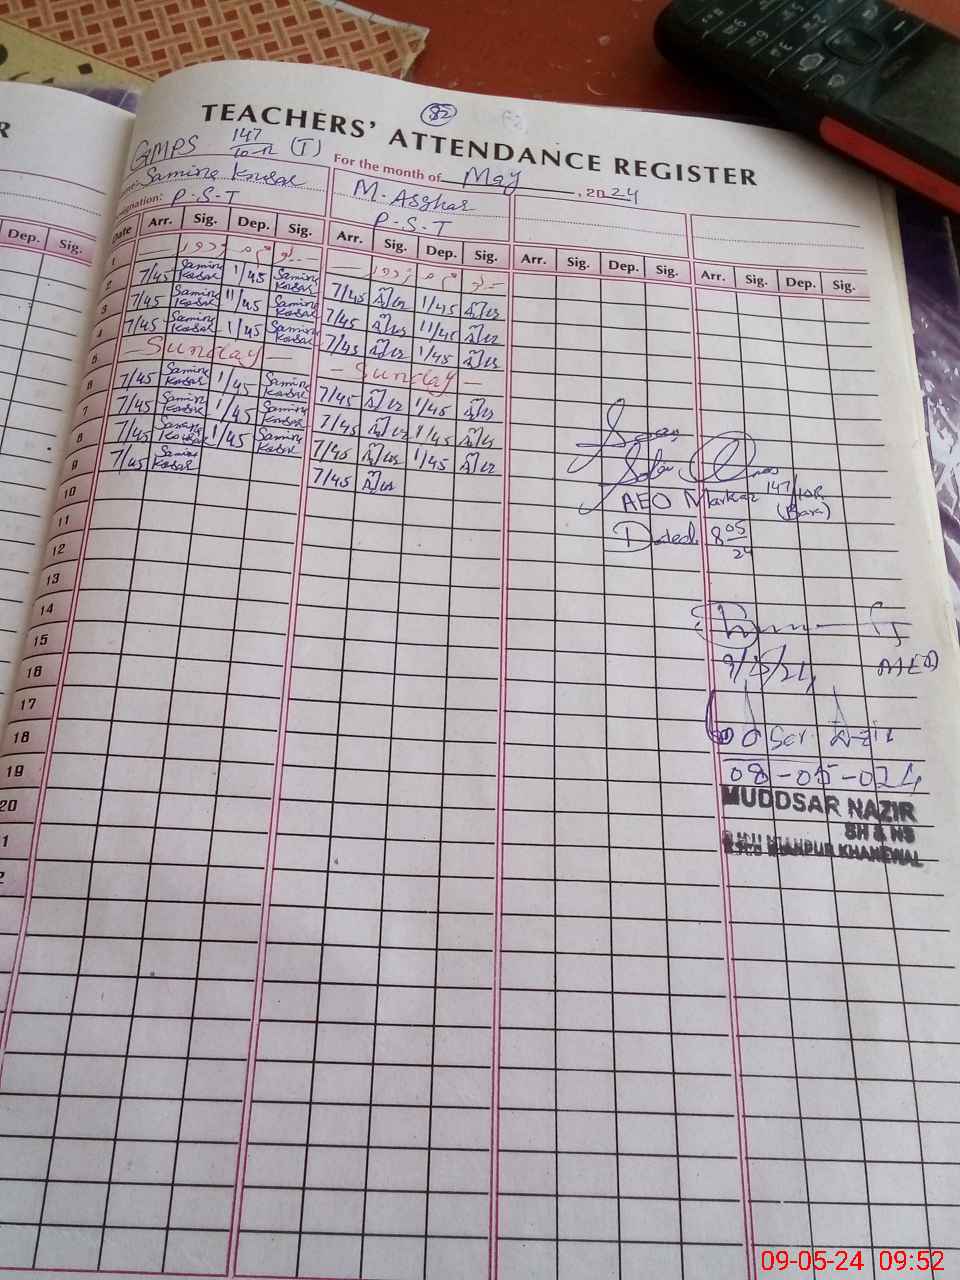 82
TEACHERS' ATTENDANCE REGISTER
GMPS 147/10-R (T)
For the month of May, 2024
Name: Samina Kousar
M. Asghar
Designation: P.S.T
P.S.T
R
Dep. Sig.
Date Arr. Sig. Dep. Sig. Arr. Sig. Dep. Sig. Arr. Sig. Dep. Sig. Arr. Sig. Dep. Sig.
1 یوم مزدور یوم مزدور
2 7/45 Samina Kousar 1/45 Samina Kousar 7/45 1/45
3 7/45 Samina Kousar 11/45 Samina Kousar 7/45 11/45
4 7/45 Samina Kousar 1/45 Samina Kousar 7/45 1/45
5 — Sunday — — Sunday —
6 7/45 Samina Kousar 1/45 Samina Kousar 7/45 1/45
7 7/45 Samina Kousar 1/45 Samina Kousar 7/45 1/45
8 7/45 Samina Kousar 1/45 Samina Kousar 7/45 1/45
9 7/45 Samina Kousar 7/45
10
11
12
13
14
15
16
17
18
19
20
1
2
AEO Markaz 147/10R
Dated. 8 05/24
9/5/24
08-05-024
MUDDSAR NAZIR
SH & NS
MIANPUR KHANEWAL
09-05-24 09:52